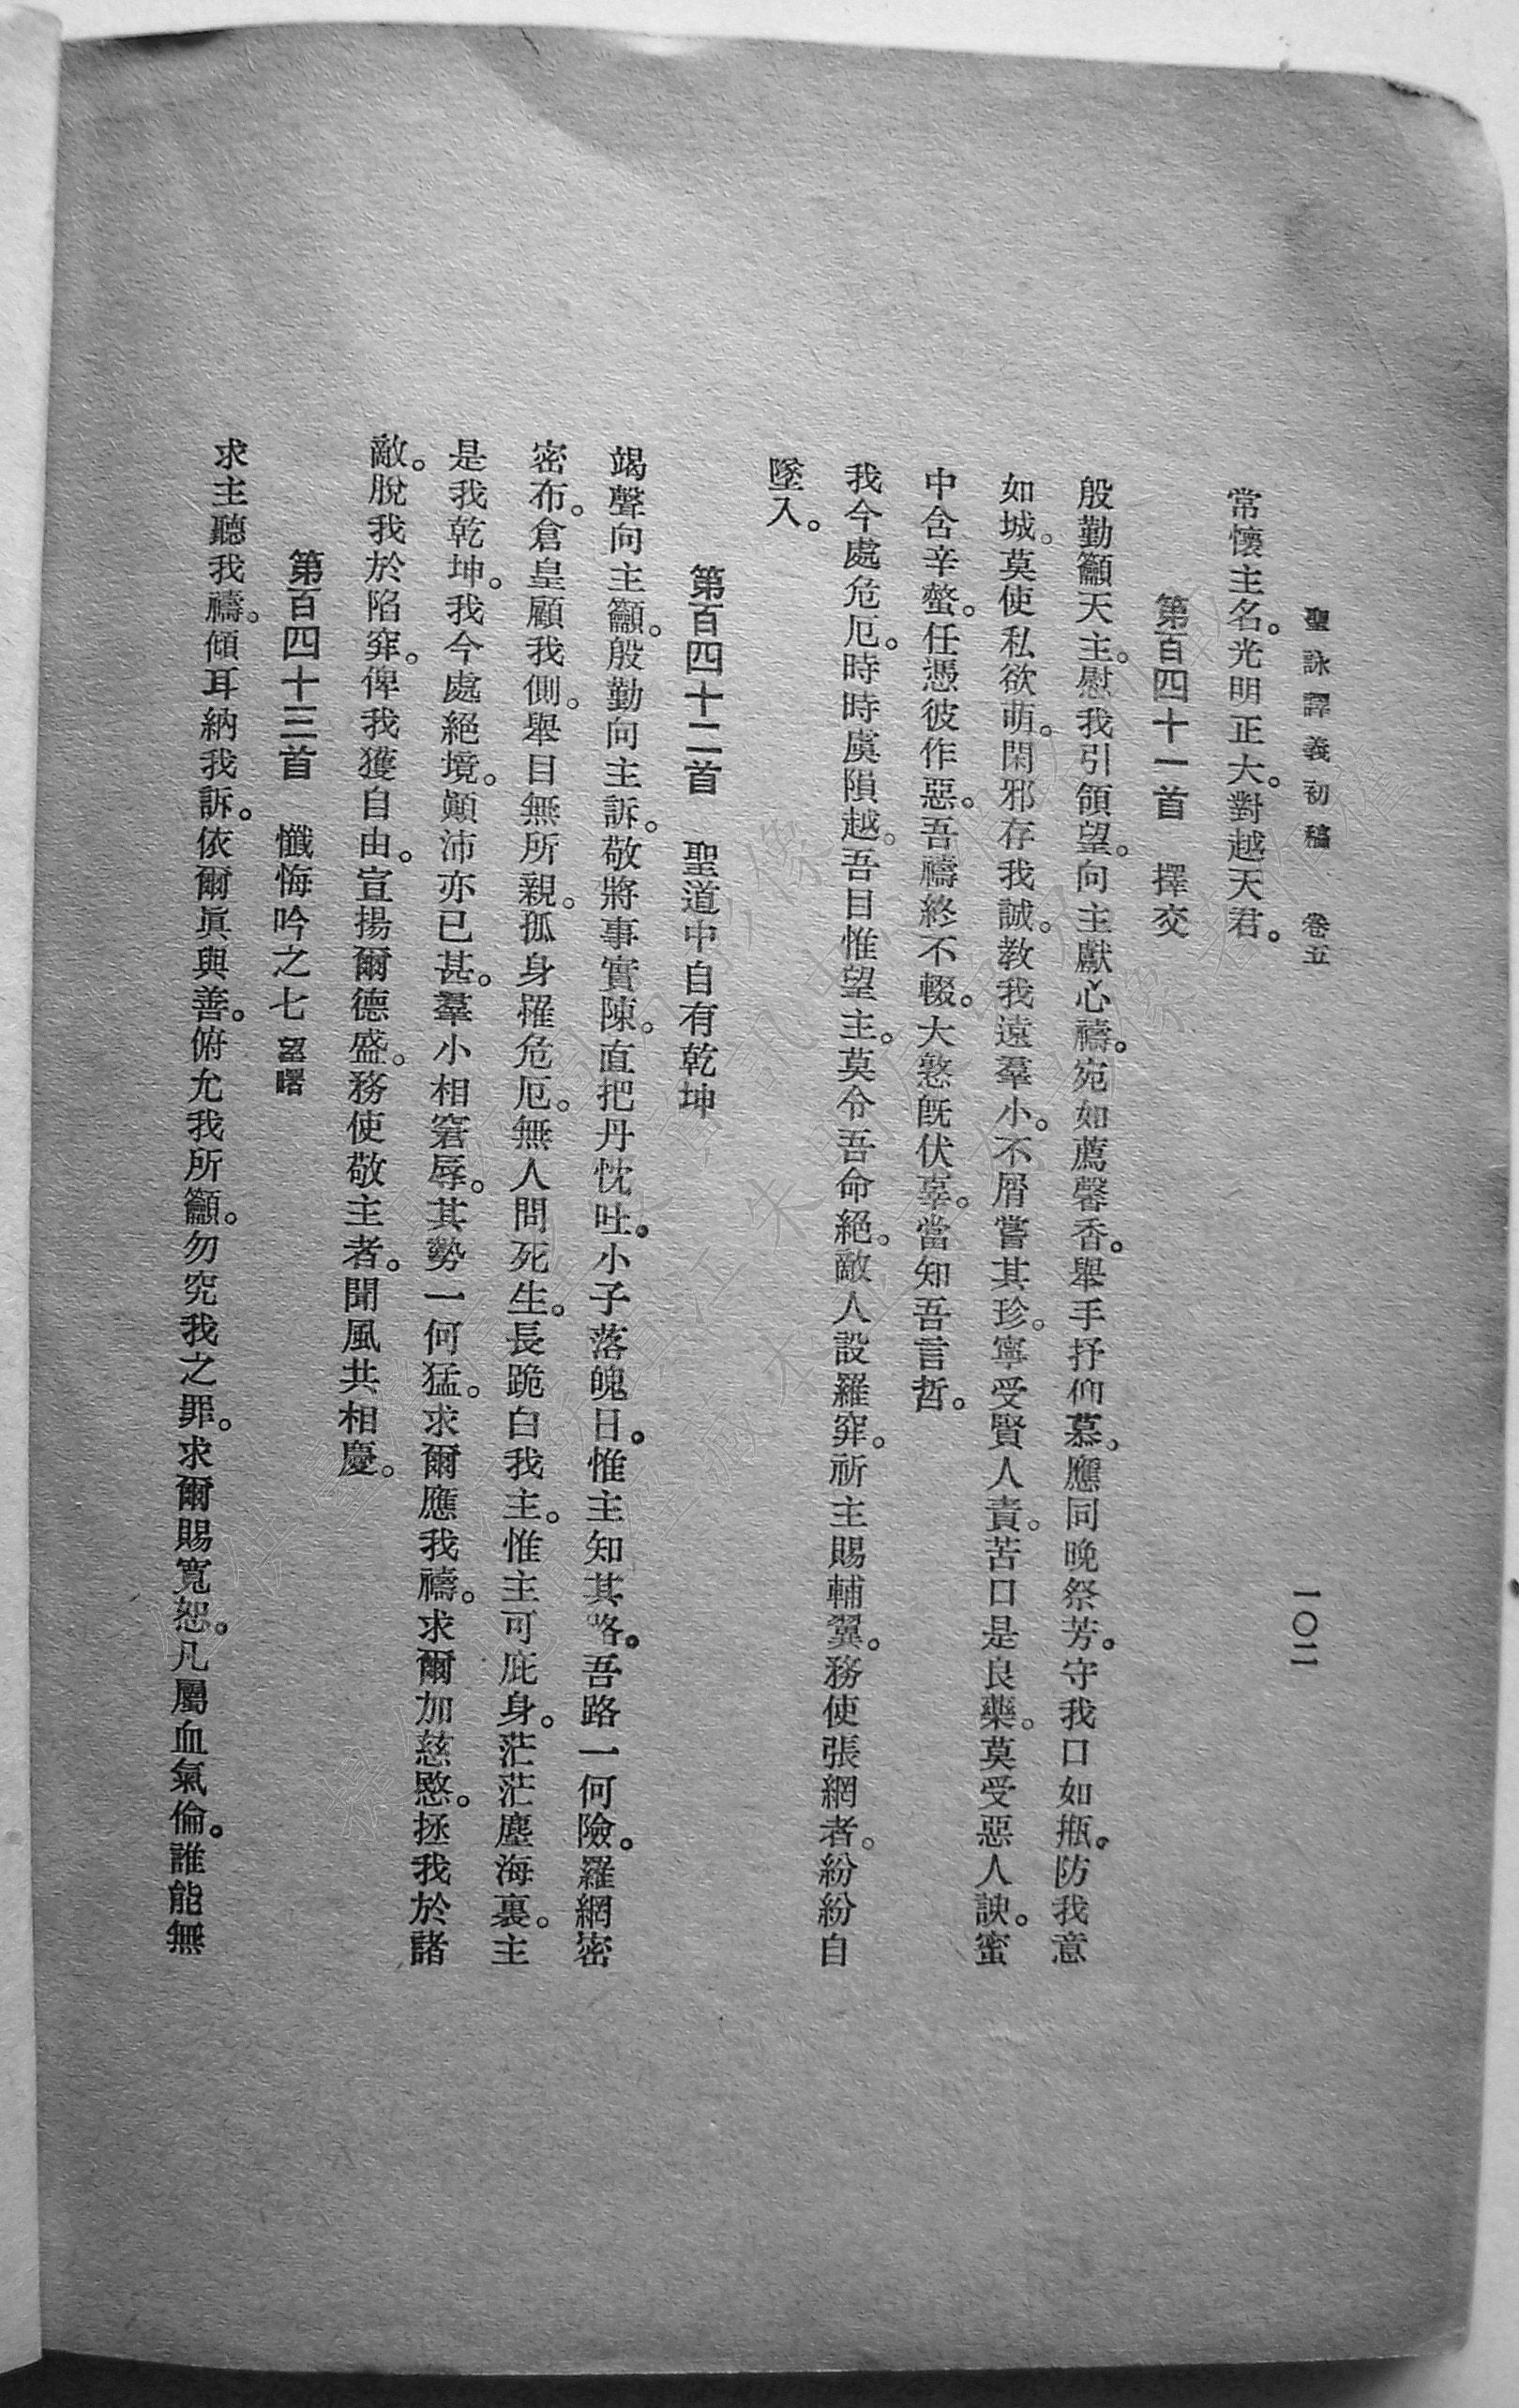 聖詠譯義初稿 卷五 一〇二
常懷主名。光明正大。對越天君。
第百四十一首 擇交
殷勤籲天主。慰我引領望。向主獻心禱。宛如薦馨香。舉手抒仰慕。應同晚祭芳。守我口如瓶。防我意
如城。莫使私欲萌。閑邪存我誠。教我遠羣小。不屑嘗其珍。寧受賢人責。苦口是良藥。莫受惡人諛。蜜
中含辛螫。任憑彼作惡。吾禱終不輟。大憝旣伏辜。當知吾言哲。
我今處危厄。時時虞隕越。吾目惟望主。莫令吾命絕。敵人設羅穽。祈主賜輔翼。務使張網者。紛紛自
墜入。
第百四十二首 聖道中自有乾坤
竭聲向主籲。殷勤向主訴。敬將事實陳。直把丹忱吐。小子落魄日。惟主知其路。吾路一何險。羅網密
密布。倉皇顧我側。舉目無所親。孤身罹危厄。無人問死生。長跪白我主。惟主可庇身。茫茫塵海裏。主
是我乾坤。我今處絕境。顚沛亦已甚。羣小相窘辱。其勢一何猛。求爾應我禱。求爾加慈愍。拯我於諸
敵。脫我於陷穽。俾我獲自由。宣揚爾德盛。務使敬主者。聞風共相慶。
第百四十三首 懺悔吟之七 望曙
求主聽我禱。傾耳納我訴。依爾眞與善。俯允我所籲。勿究我之罪。求爾賜寬恕。凡屬血氣倫。誰能無